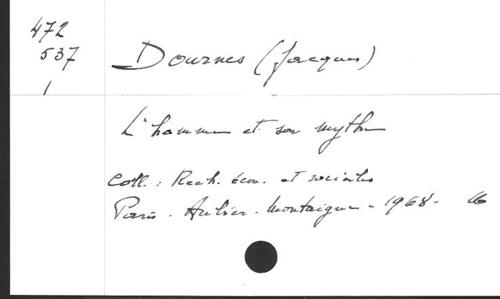 472
537 Dournes (Jacques)
1
L'homme et son mythe
Coll. : Rech. écon. et sociales
Paris - Aubier - Montaigne - 1968 -